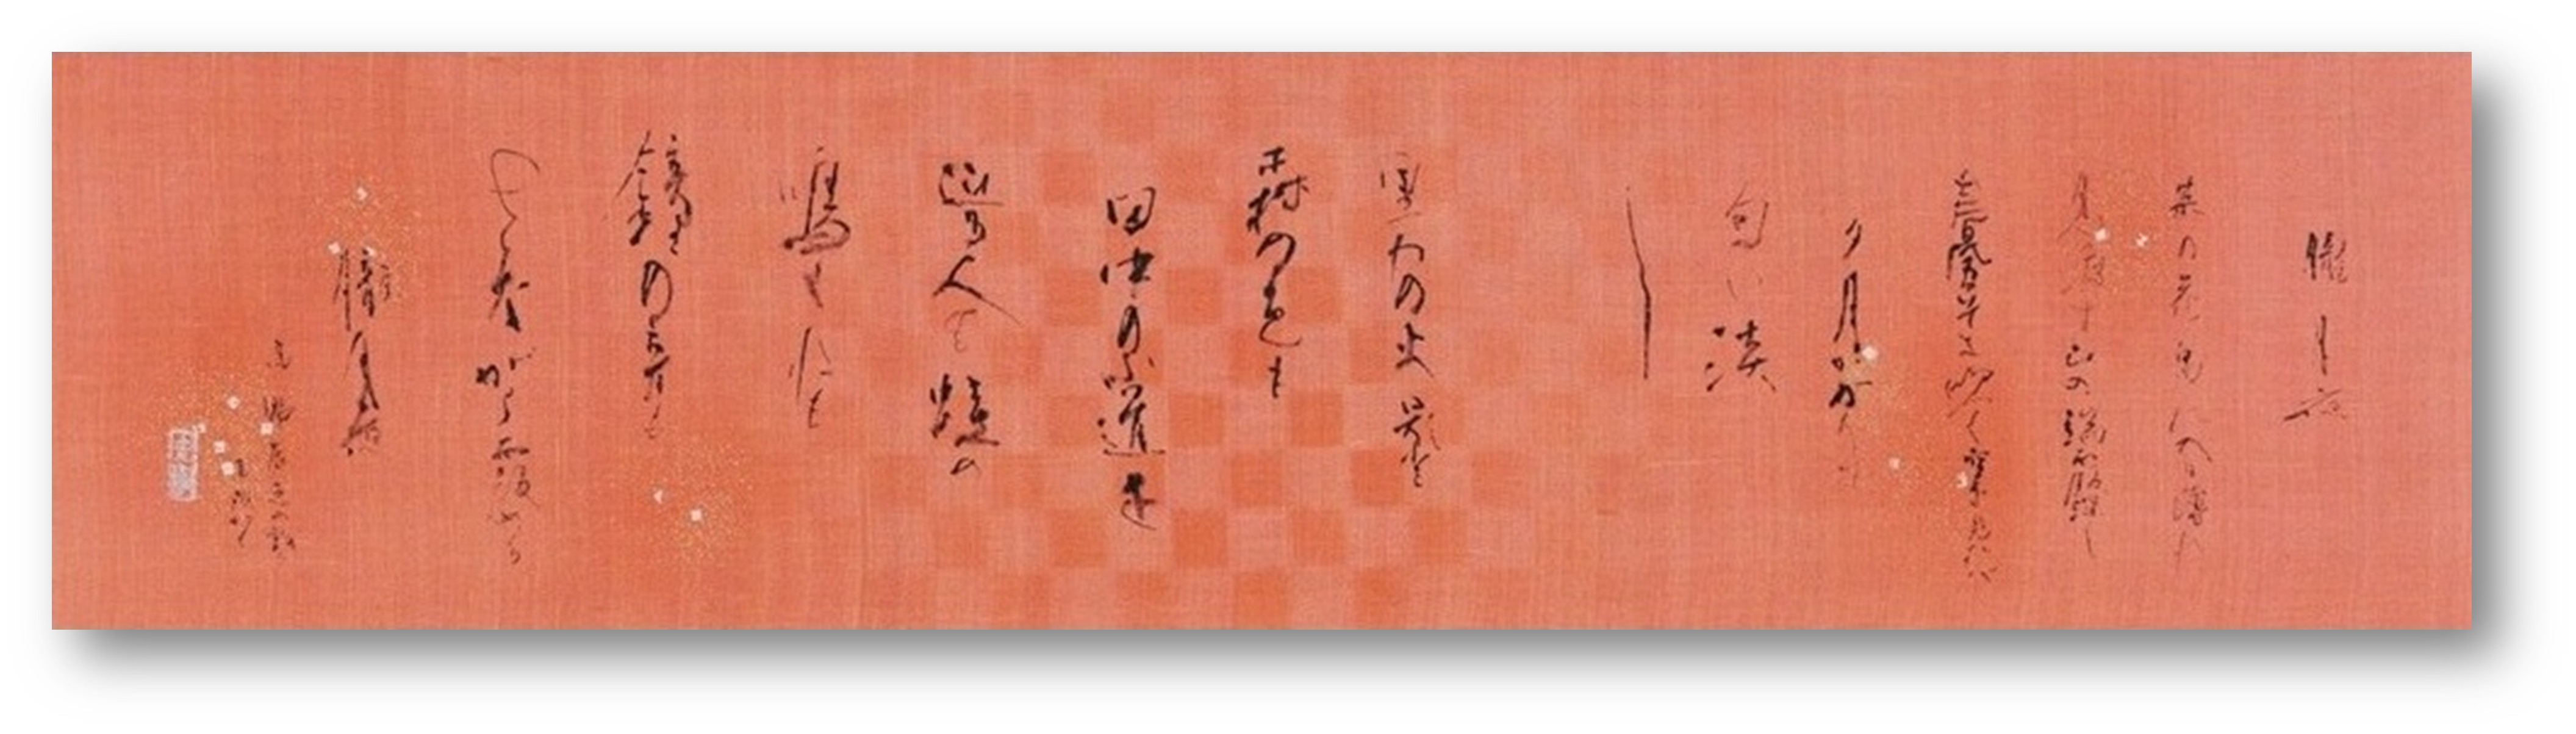 朧月夜
菜の花畠に入日薄れ
見渡す山の端霞深し
春風そよ吹く空を見れば
夕月かかりて
匂い淡
し
里わの火影も
森の色も
田中の小路を
辿る人も蛙の
鳴くねも
鐘の音も
さながら霞める
朧月夜
高野辰之の歌